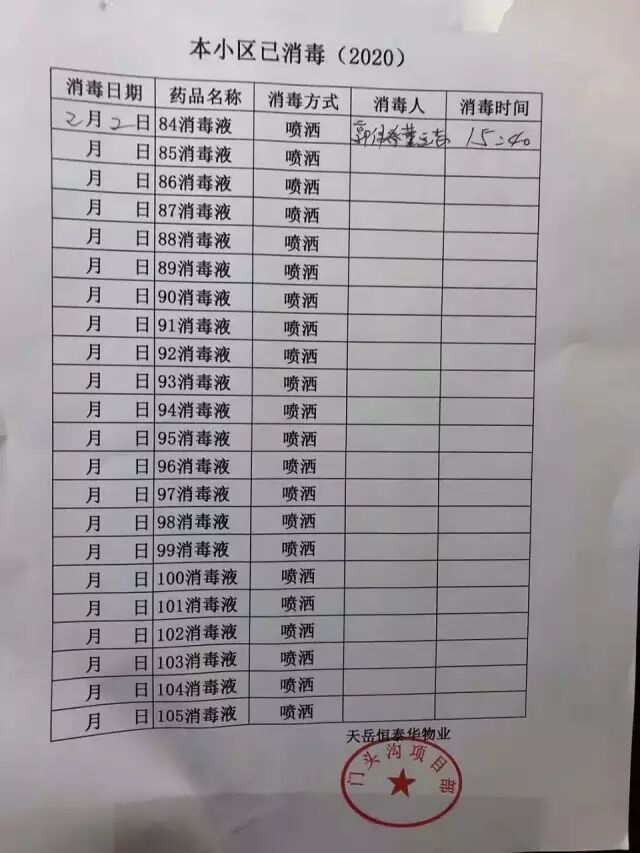 本小区已消毒（2020）
消毒日期 药品名称 消毒方式 消毒人 消毒时间
2月2日 84消毒液 喷洒 15:40
月 日 85消毒液 喷洒
月 日 86消毒液 喷洒
月 日 87消毒液 喷洒
月 日 88消毒液 喷洒
月 日 89消毒液 喷洒
月 日 90消毒液 喷洒
月 日 91消毒液 喷洒
月 日 92消毒液 喷洒
月 日 93消毒液 喷洒
月 日 94消毒液 喷洒
月 日 95消毒液 喷洒
月 日 96消毒液 喷洒
月 日 97消毒液 喷洒
月 日 98消毒液 喷洒
月 日 99消毒液 喷洒
月 日 100消毒液 喷洒
月 日 101消毒液 喷洒
月 日 102消毒液 喷洒
月 日 103消毒液 喷洒
月 日 104消毒液 喷洒
月 日 105消毒液 喷洒
天岳恒泰华物业
门头沟项目部